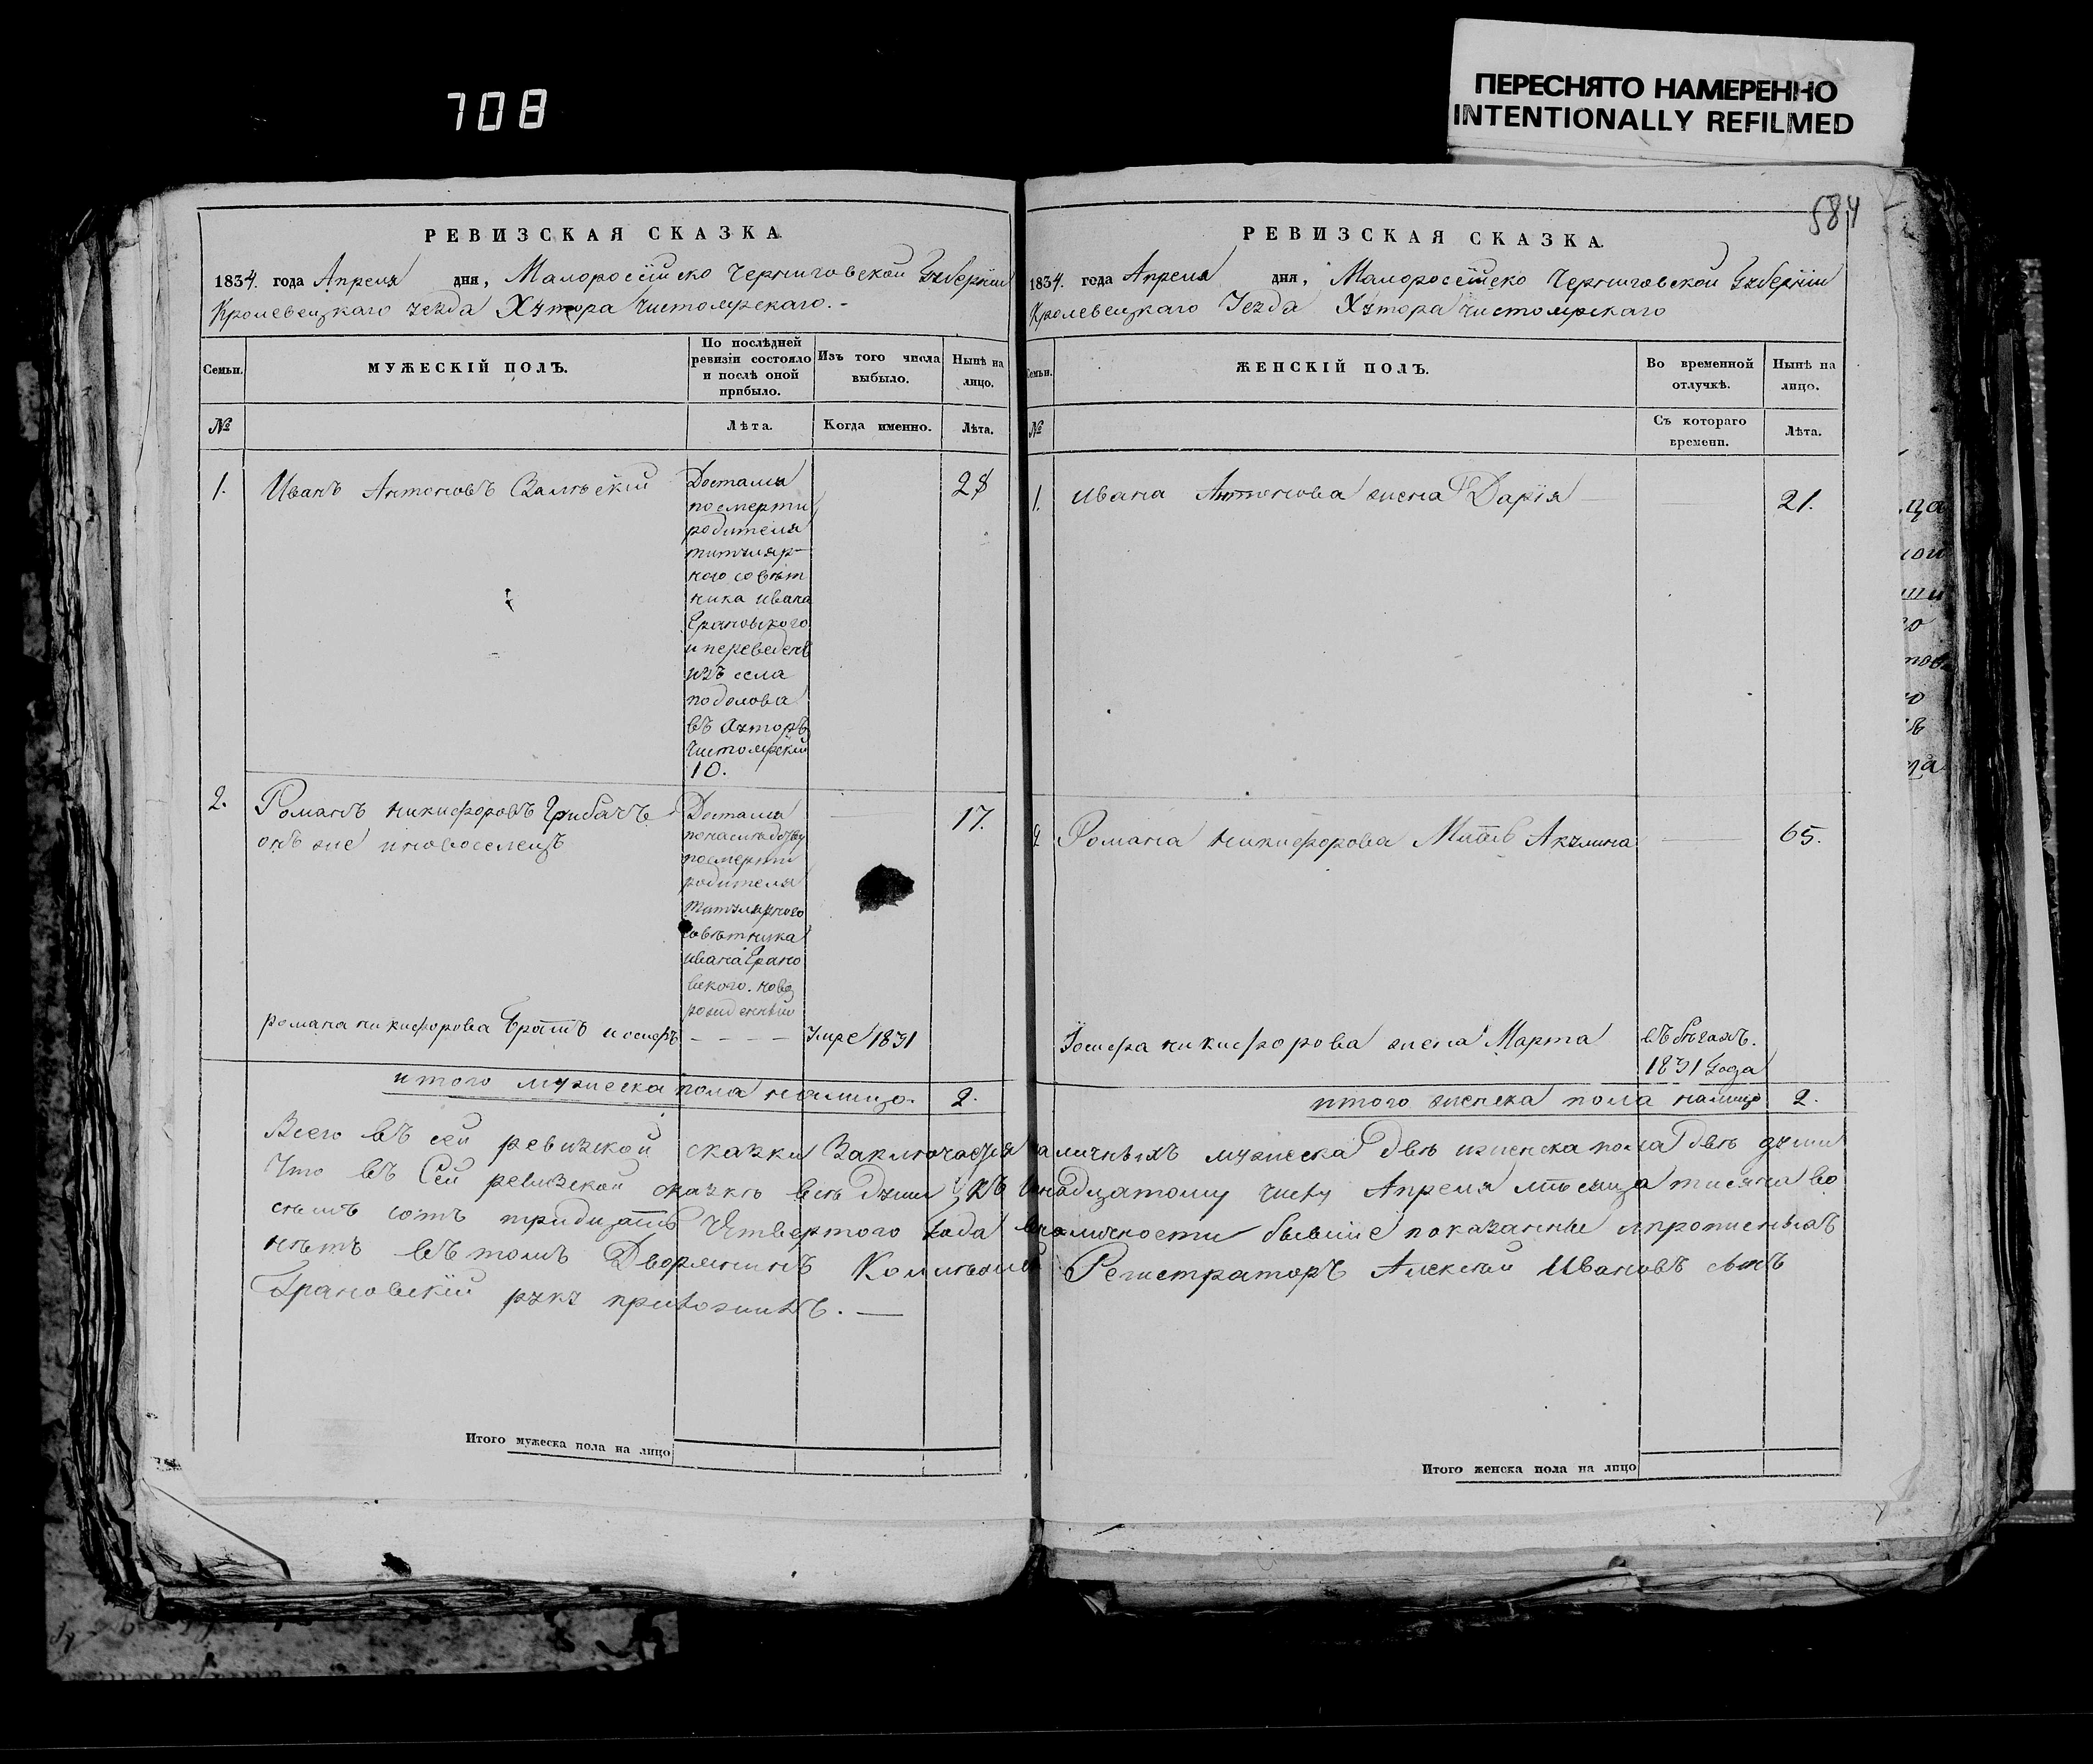 708
ПЕРЕСНЯТО НАМЕРЕННО
INTENTIONALLY REFILMED
584
РЕВИЗСКАЯ СКАЗКА
1834. года Апреля дня, Малороссійско Черниговской Губерніи
Кролевецкаго уезда Хутора Чистоярскаго.-
Семьи.
МУЖЕСКІЙ ПОЛЪ.
По послѣдней
ревизіи состояло
и послѣ оной
прибыло.
Изъ того числа
выбыло.
Нынѣ на
лицо.
№
Лѣта.
Когда именно.
Лѣта.
1.
Иванъ Антоновъ
28
Достался
посмерти
родителя
титуляр-
ного совѣт
ника ивана
Грановского
и переведенъ
изъ села
подолова
въ хуторъ
Чистоярскій
10.
2.
Романъ никифоровъ Грибачъ
онъ же иновоселецъ
17.
Достался
посмерти
родителя
титулярного
совѣтника
ивана Грано
вского.
романа никифорова братъ иосифъ
- - - -
Умре 1831
итого мужеска пола налицо.
2.
РЕВИЗСКАЯ СКАЗКА.
1834. года Апреля дня, Малороссійско Черниговской Губерніи
Кролевецкаго Уезда Хутора Чистоярскаго
Семьи.
ЖЕНСКІЙ ПОЛЪ.
Во временной
отлучкѣ.
Нынѣ на
лицо.
№
Съ котораго
времени.
Лѣта.
1.
ивана Антонова жена Дарія
21.
2
Романа никифорова Мать Акулина
65.
Іосифа никифорова жена Марта
въ бѣгахъ.
1831 Года
итого женска пола налицо
2.
Всего въ сей ревизской сказки Заключается наличныхъ мужеска двѣ иженска пола двѣ души
Что въ Сей ревизской сказкѣ всѣ Души къ Апреля мѣсяца тисяча во
семъ сотъ тридцать Четвертого Года вналичности бывшіе показанны ипрописныхъ
нѣтъ въ томъ Дворянинъ Регистраторъ Алексѣй Ивановъ сынъ
Грановскій руку приложилъ. —
Итого мужеска пола на лицо
Итого женска пола на лицо